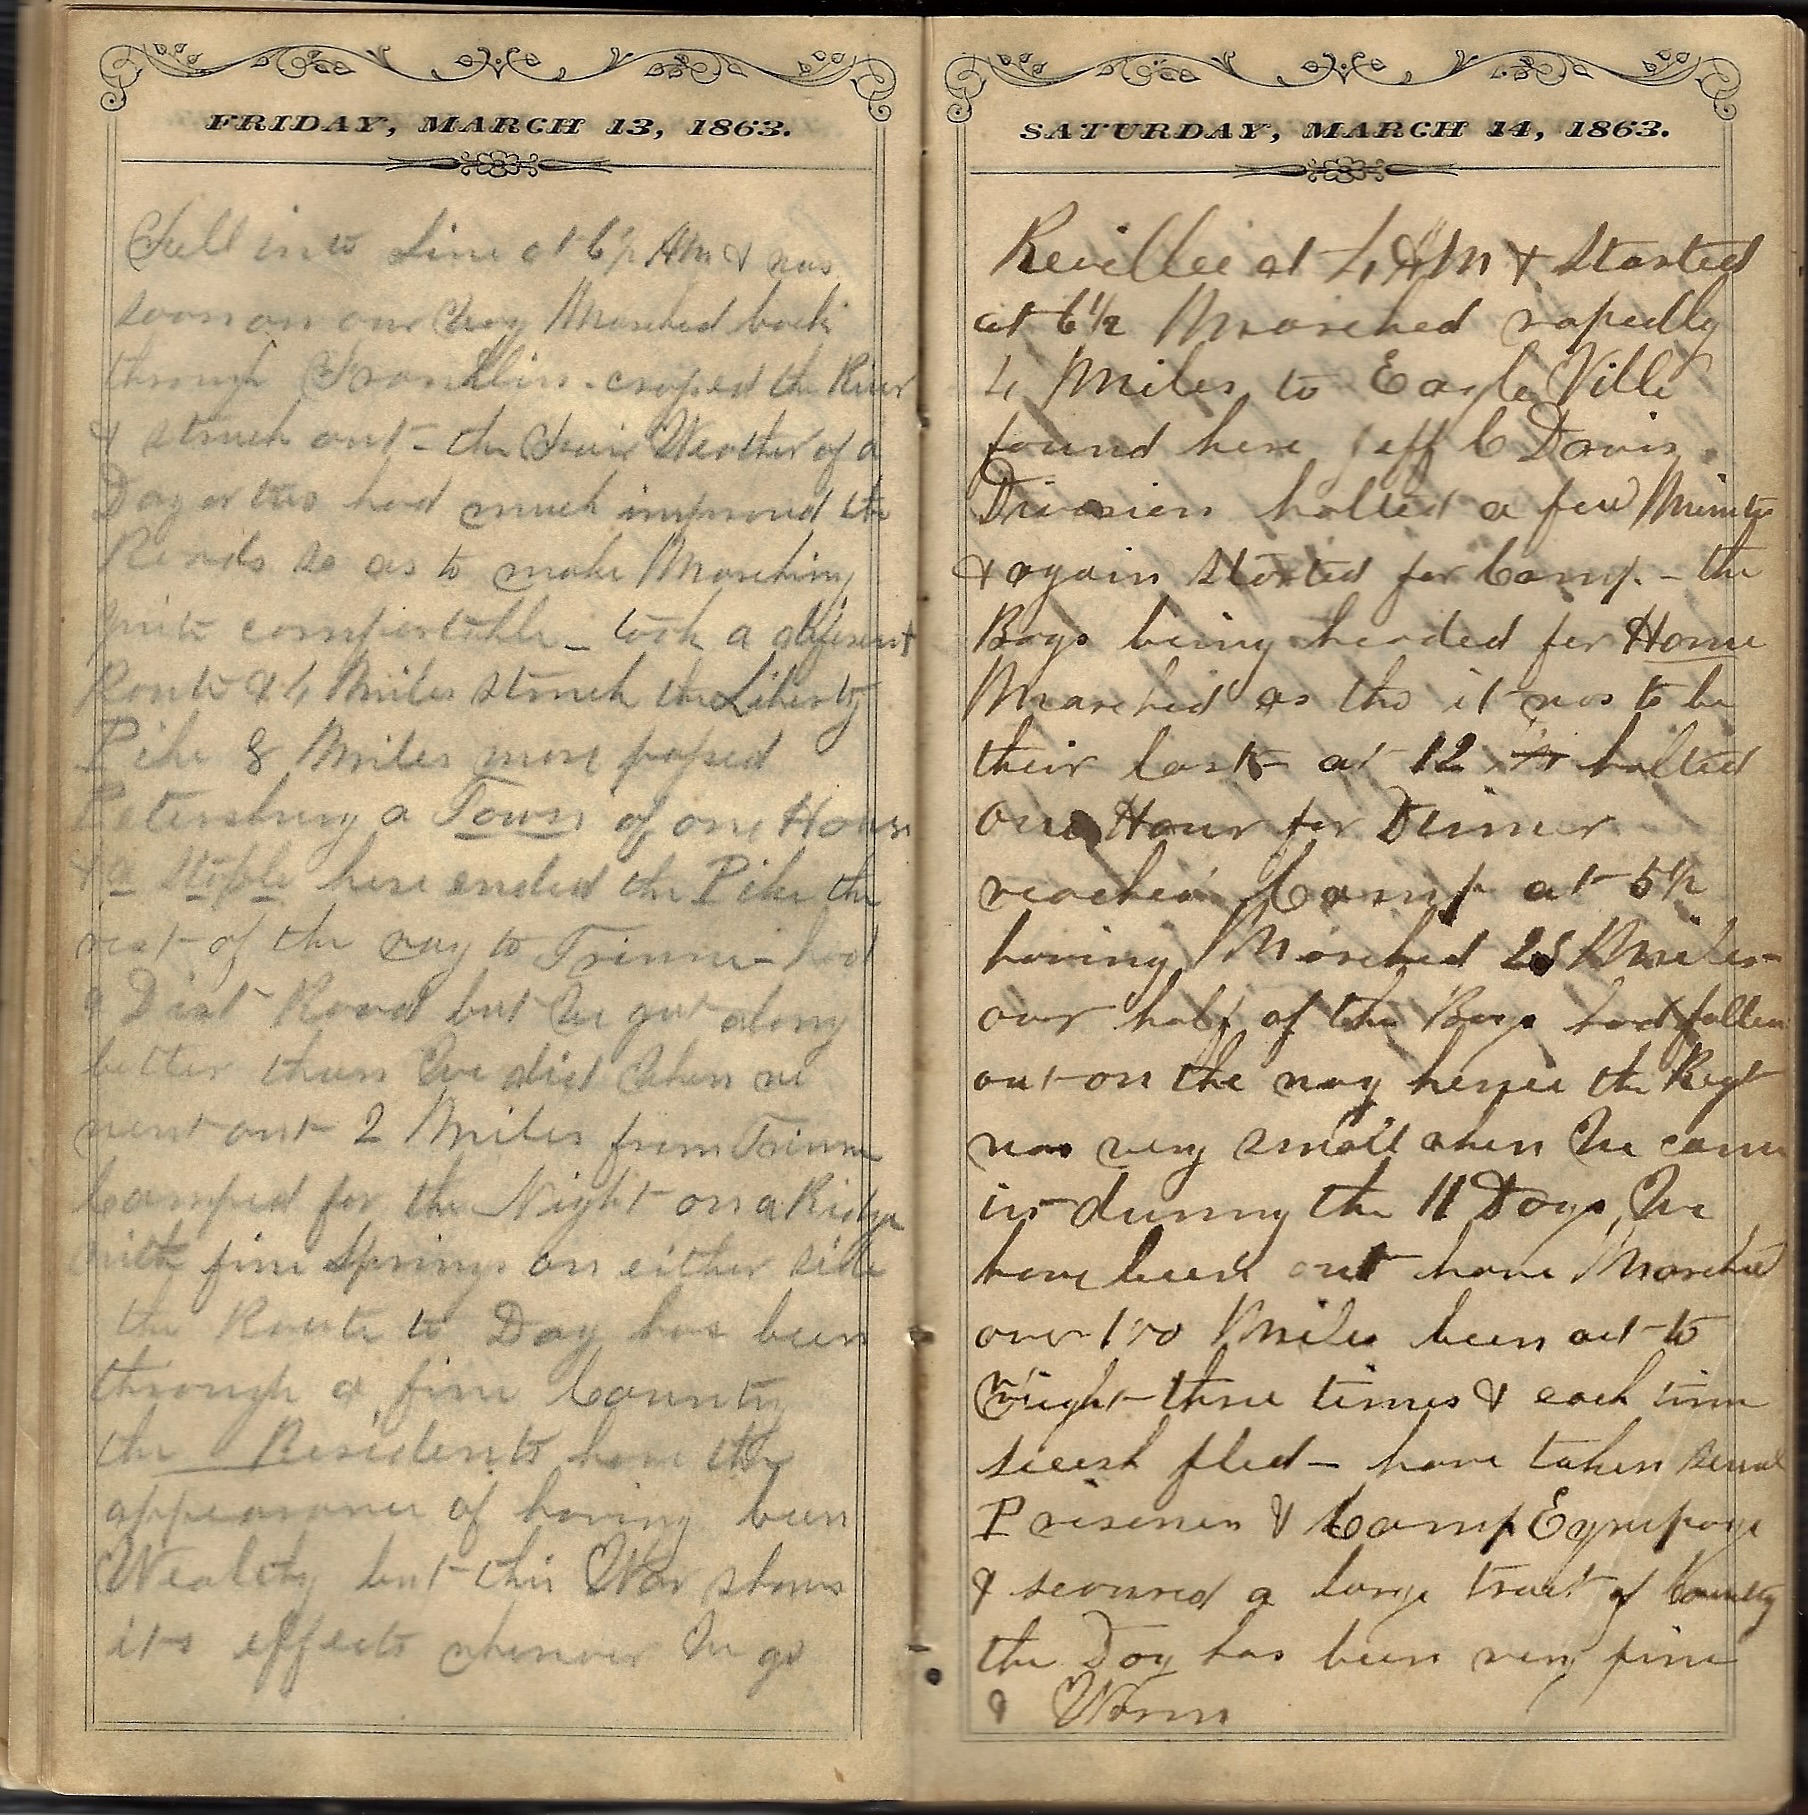 FRIDAY, MARCH 13, 1863.
Fell into Line at 6½ AM & was
soon on our way Marched back
through Franklin - crossed the River
& struck out - the Fair Weather of a
Day or two had much improved the
Roads so as to make Marching
quite comfortable - took a different
Route & 4 Miles struck the Liberty
Pike 8 Miles more passed
Petersburg a Town of one House
& a Stable here ended the Pike the
rest of the way to Triune had
a Dirt Road but We got along
better than We did When we
went out 2 Miles from Triune
Camped for the Night on a Ridge
with fine Springs on either side
the Route to Day has been
through a fine County
the Residents have the
appearance of having been
Wealthy but this War shows
its effects whenever We go
SATURDAY, MARCH 14, 1863.
Reveillee at 4 AM & Started
at 6½ Marched rapedly
4 Miles to Eagle Ville
found here Jeff C Davis
Division halted a few Minutes
& again Started for Camp. - the
Boys being headed for Home
Marched as tho it was to be
their last - at 12 halted
One Hour for Dinner
reached Camp at 5½
having Marched 28 Miles -
over half of the Boys had fallen
out on the way hence the Regt
was very small when We came
in - during the 11 Days We
have been out have Marched
over 100 Miles been out to
Fight three times & each time
secesh fled - have taken several
Prisoners & Camp Equipage
& secured a large tract of County
the Day has been very fine
& Warm